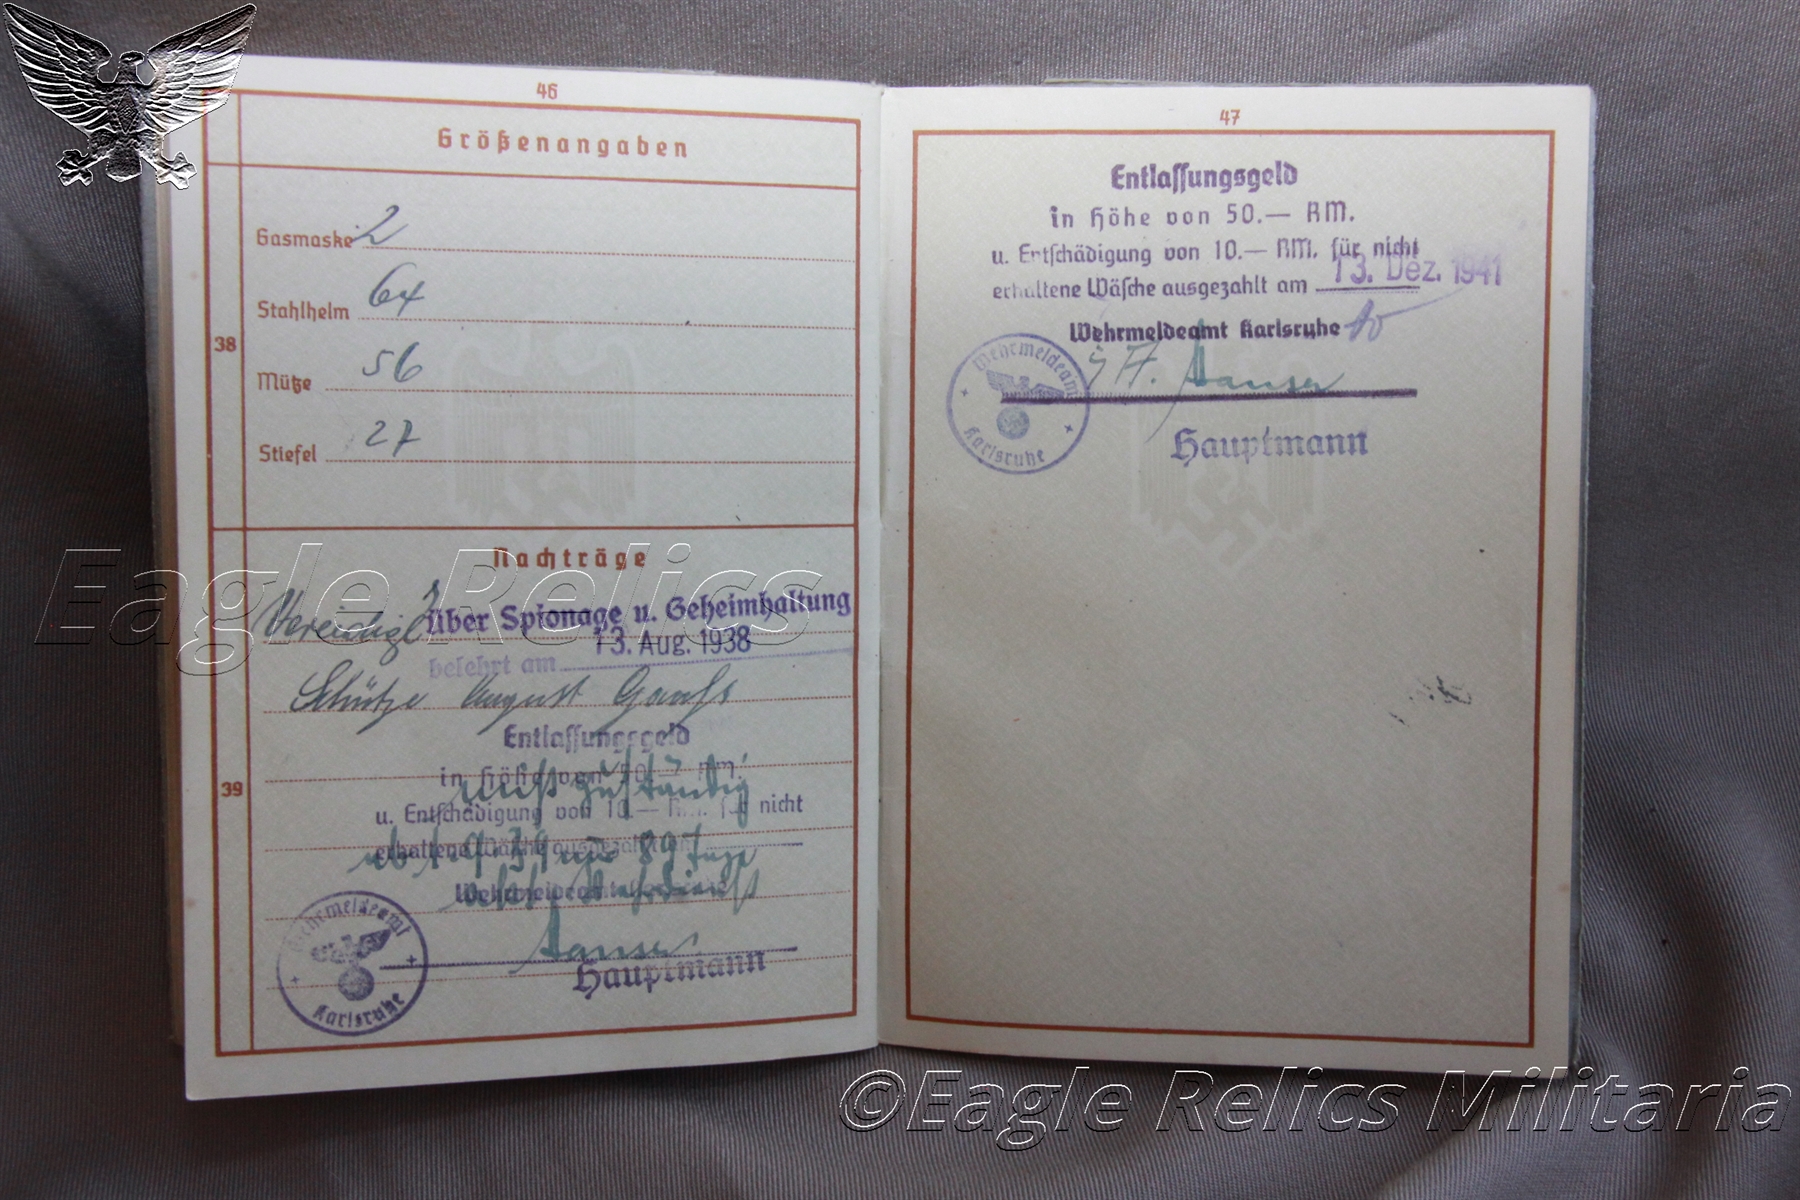 46
Größenangaben
38
Gasmaske 2
Stahlhelm 64
Mütze 56
Stiefel 27
Nachträge
39
Vereidigt
über Spionage u. Geheimhaltung
belehrt am 13. Aug. 1938
Schütze August
Entlassungsgeld
in Höhe von 50.— RM.
nicht zuständig
u. Entschädigung von 10.— RM. für nicht
erhaltene Wäsche ausgezahlt am
ab 1.9.39 89 Tage
Wehrmeldeamt
Wehrmeldeamt Karlsruhe
Hauptmann
47
Entlassungsgeld
in Höhe von 50.— RM.
u. Entschädigung von 10.— RM. für nicht
erhaltene Wäsche ausgezahlt am 13. Dez. 1941
Wehrmeldeamt Karlsruhe
Wehrmeldeamt Karlsruhe
Hauptmann
Eagle Relics
©Eagle Relics Militaria